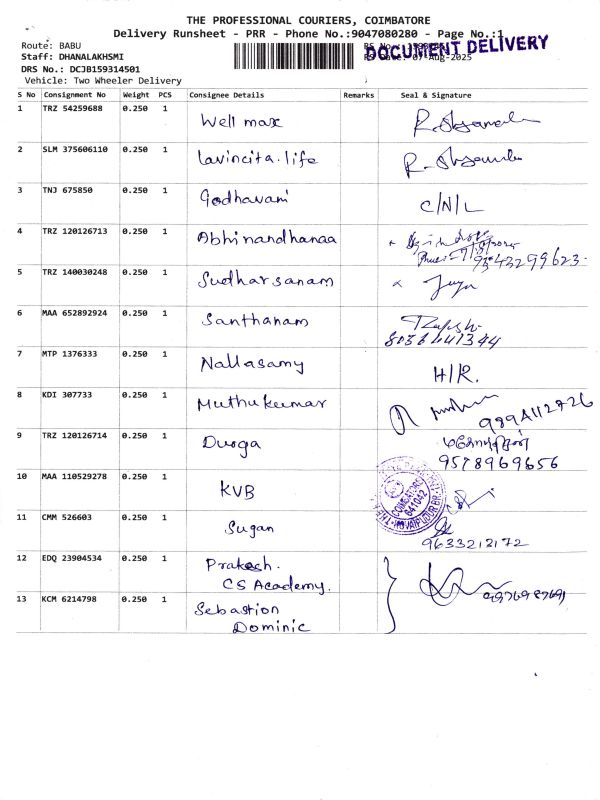 THE PROFESSIONAL COURIERS, COIMBATORE
Delivery Runsheet - PRR - Phone No.:9047080280 - Page No.:1
DOCUMENT DELIVERY
Route: BABU
Staff: DHANALAKHSMI
07-Aug-2025
DRS No.: DCJB159314501
Vehicle: Two Wheeler Delivery
S No Consignment No Weight PCS Consignee Details Remarks Seal & Signature
1 TRZ 54259688 0.250 1 Well max
2 SLM 375606110 0.250 1 Lavincita.life
3 TNJ 675850 0.250 1 Godhavani C/N/L
4 TRZ 120126713 0.250 1 Abhinandhanaa
9543299623
5 TRZ 140030248 0.250 1 Sudharsanam
6 MAA 652892924 0.250 1 Santhanam
7 MTP 1376333 0.250 1 Nallasamy H/R.
8 KDI 307733 0.250 1 Muthukumar
9 TRZ 120126714 0.250 1 Durga
9578969656
10 MAA 110529278 0.250 1 KVB
COIMBATORE
641042
11 CMM 526603 0.250 1 Sugan
9633212172
12 EDQ 23904534 0.250 1 Prakash.
CS Academy.
13 KCM 6214798 0.250 1 Sebastion
Dominic